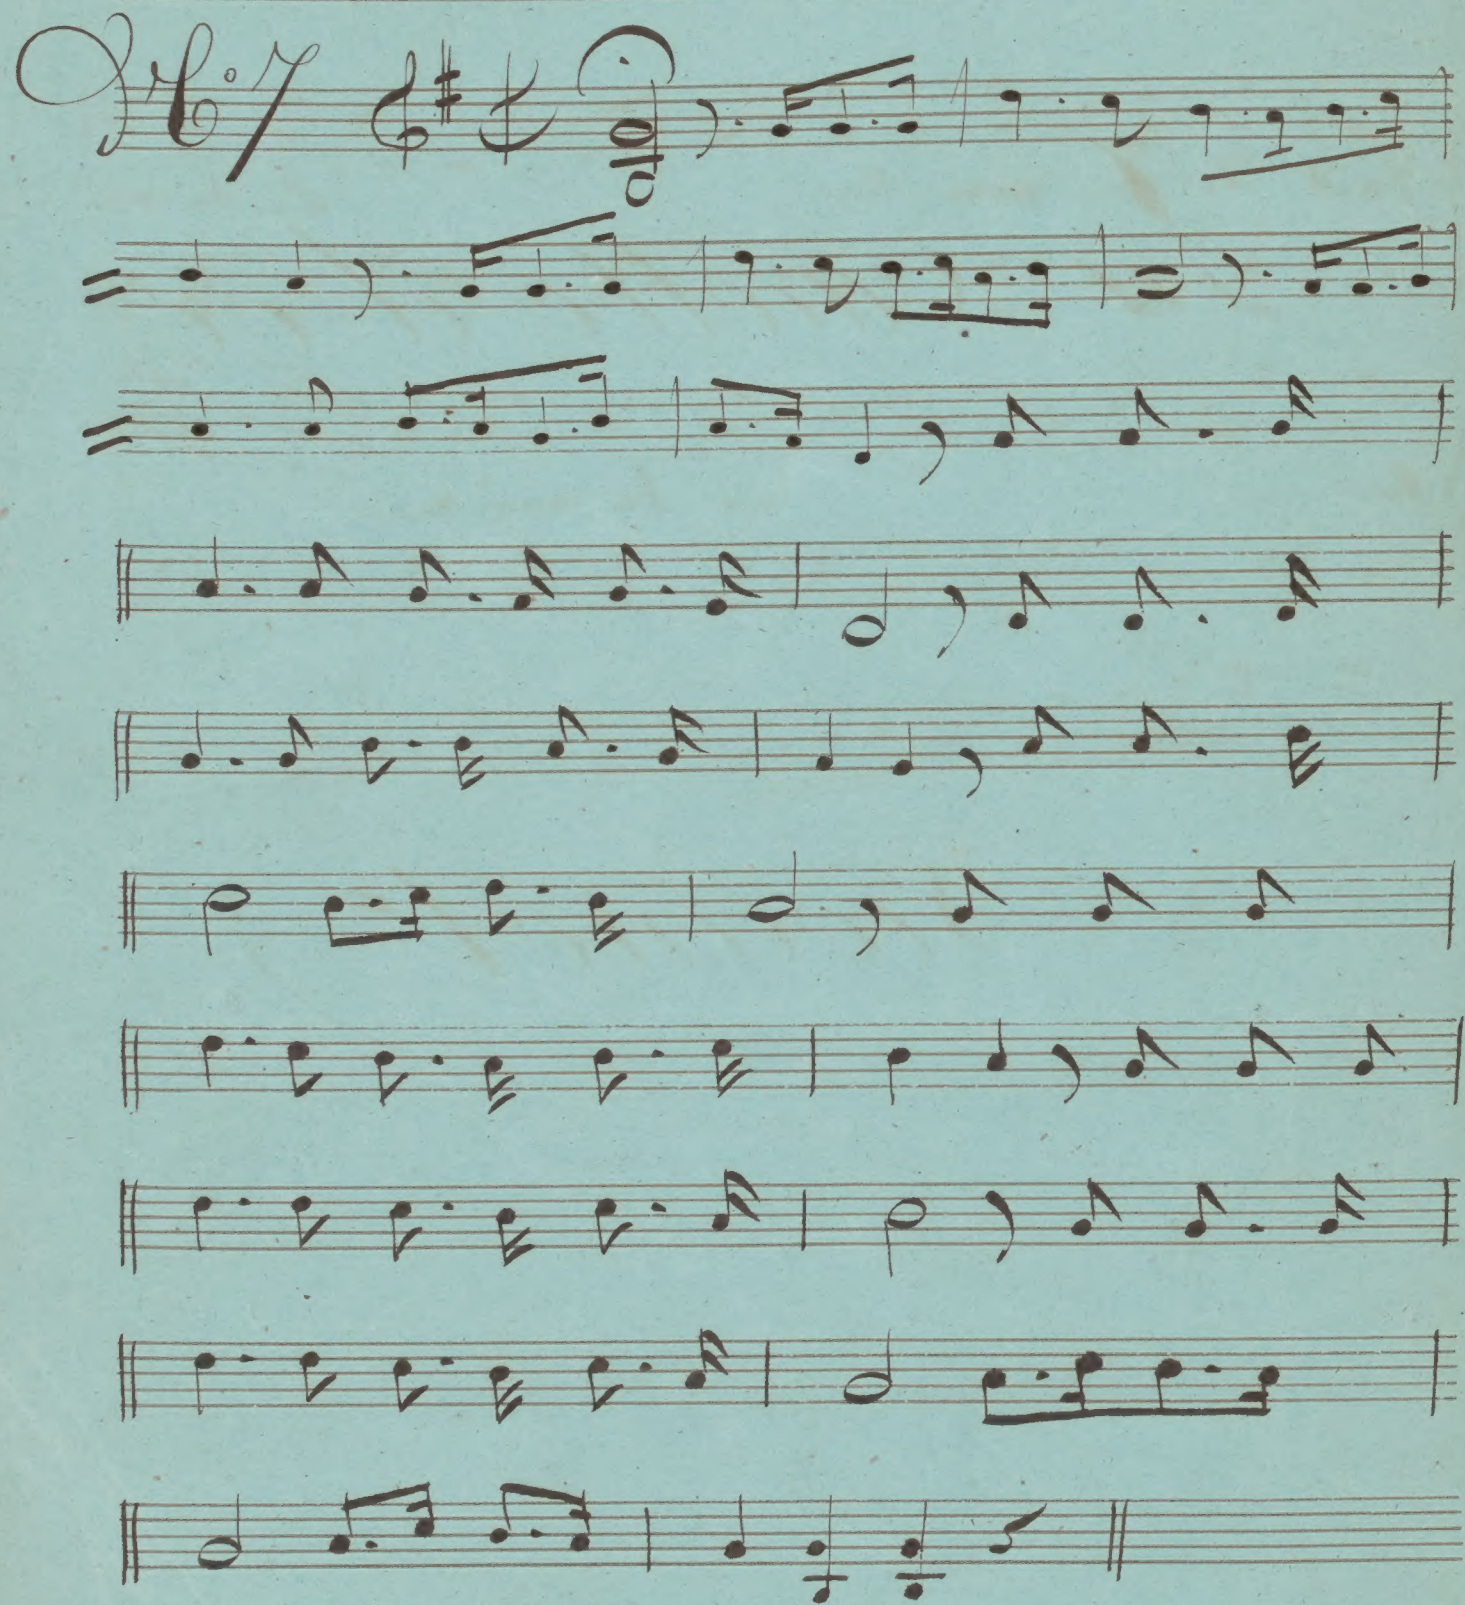 N.º 7